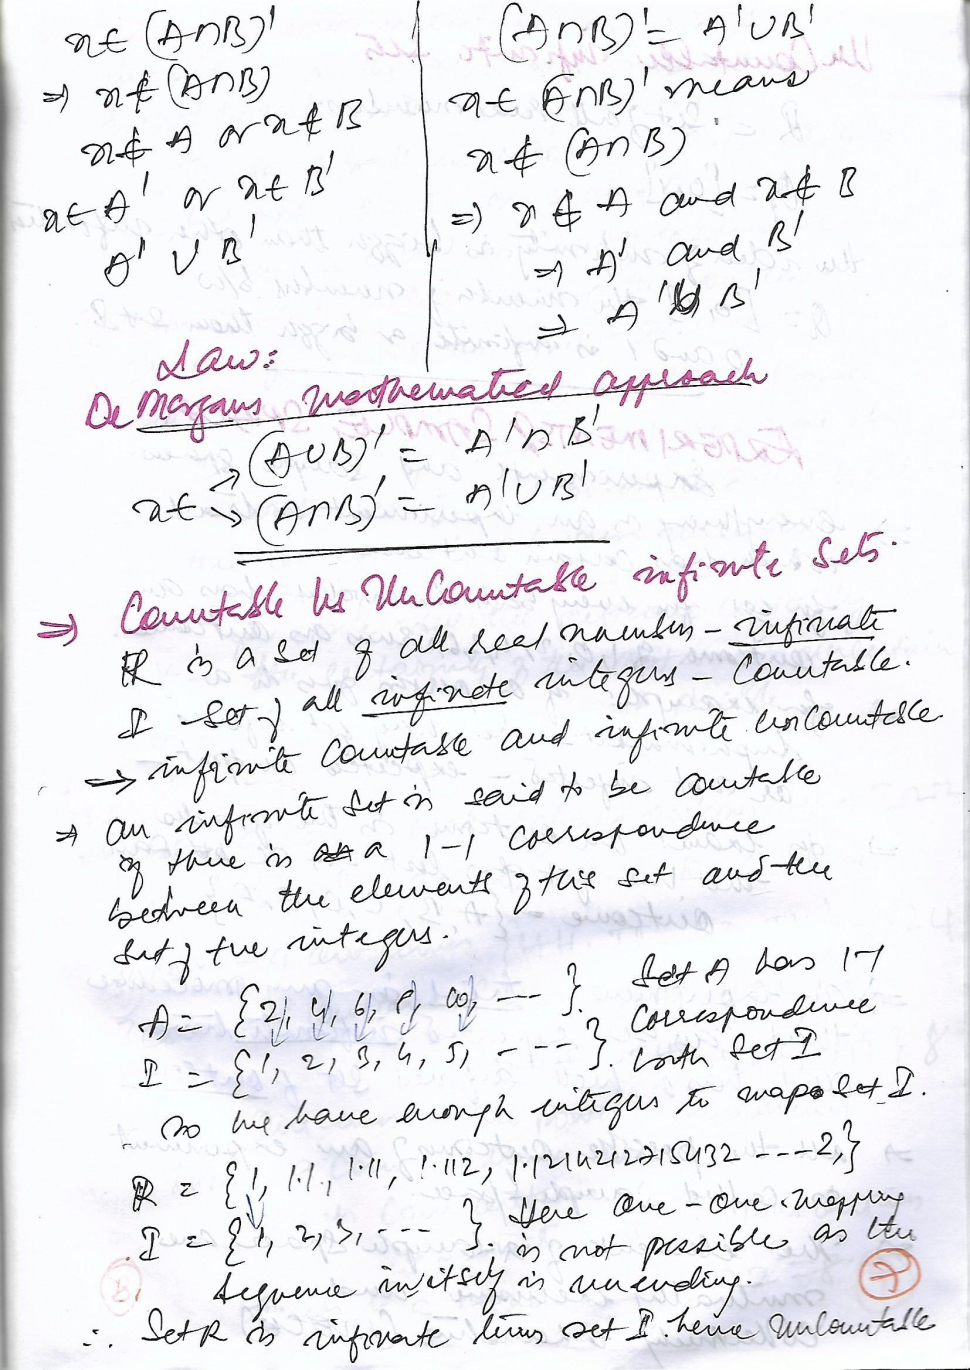 x∈ (A∩B)'
⇒ x∉ (A∩B)
x∉ A or x∉ B
x∈ A' or x∈ B'
A' ∪ B'
(A∩B)' = A'∪B'
x∈ (A∩B)' means
x∉ (A∩B)
⇒ x∉ A and x∉ B
⇒ A' and B'
⇒ A' ∪ B'
Law:
De Morgans mathematical approach
(A∪B)' = A'∩B'
x∈
(A∩B)' = A'∪B'
⇒ Countable Vs UnCountable infinite Sets.
R is a set of all real numbers - infinite
I set of all infinite integers - Countable.
→ infinite Countable and infinite unCountable.
⇒ an infinite set is said to be countable
if there is a 1-1 correspondence
between the elements of this set and the
set of the integers.
A = {2, 4, 6, 8, 10, --- }. Set A has 1-1
I = {1, 2, 3, 4, 5, - --- }. correspondence
with Set I
so we have enough integers to map Set I.
R = {1, 1.1, 1.11, 1.112, 1.1214212715432 --- 2,}
I = {1, 2, 3, ---- }. Here one-one mapping
is not possible as the
sequence in itself is unending.
7
∴ Set R is infinite times set I. hence Uncountable